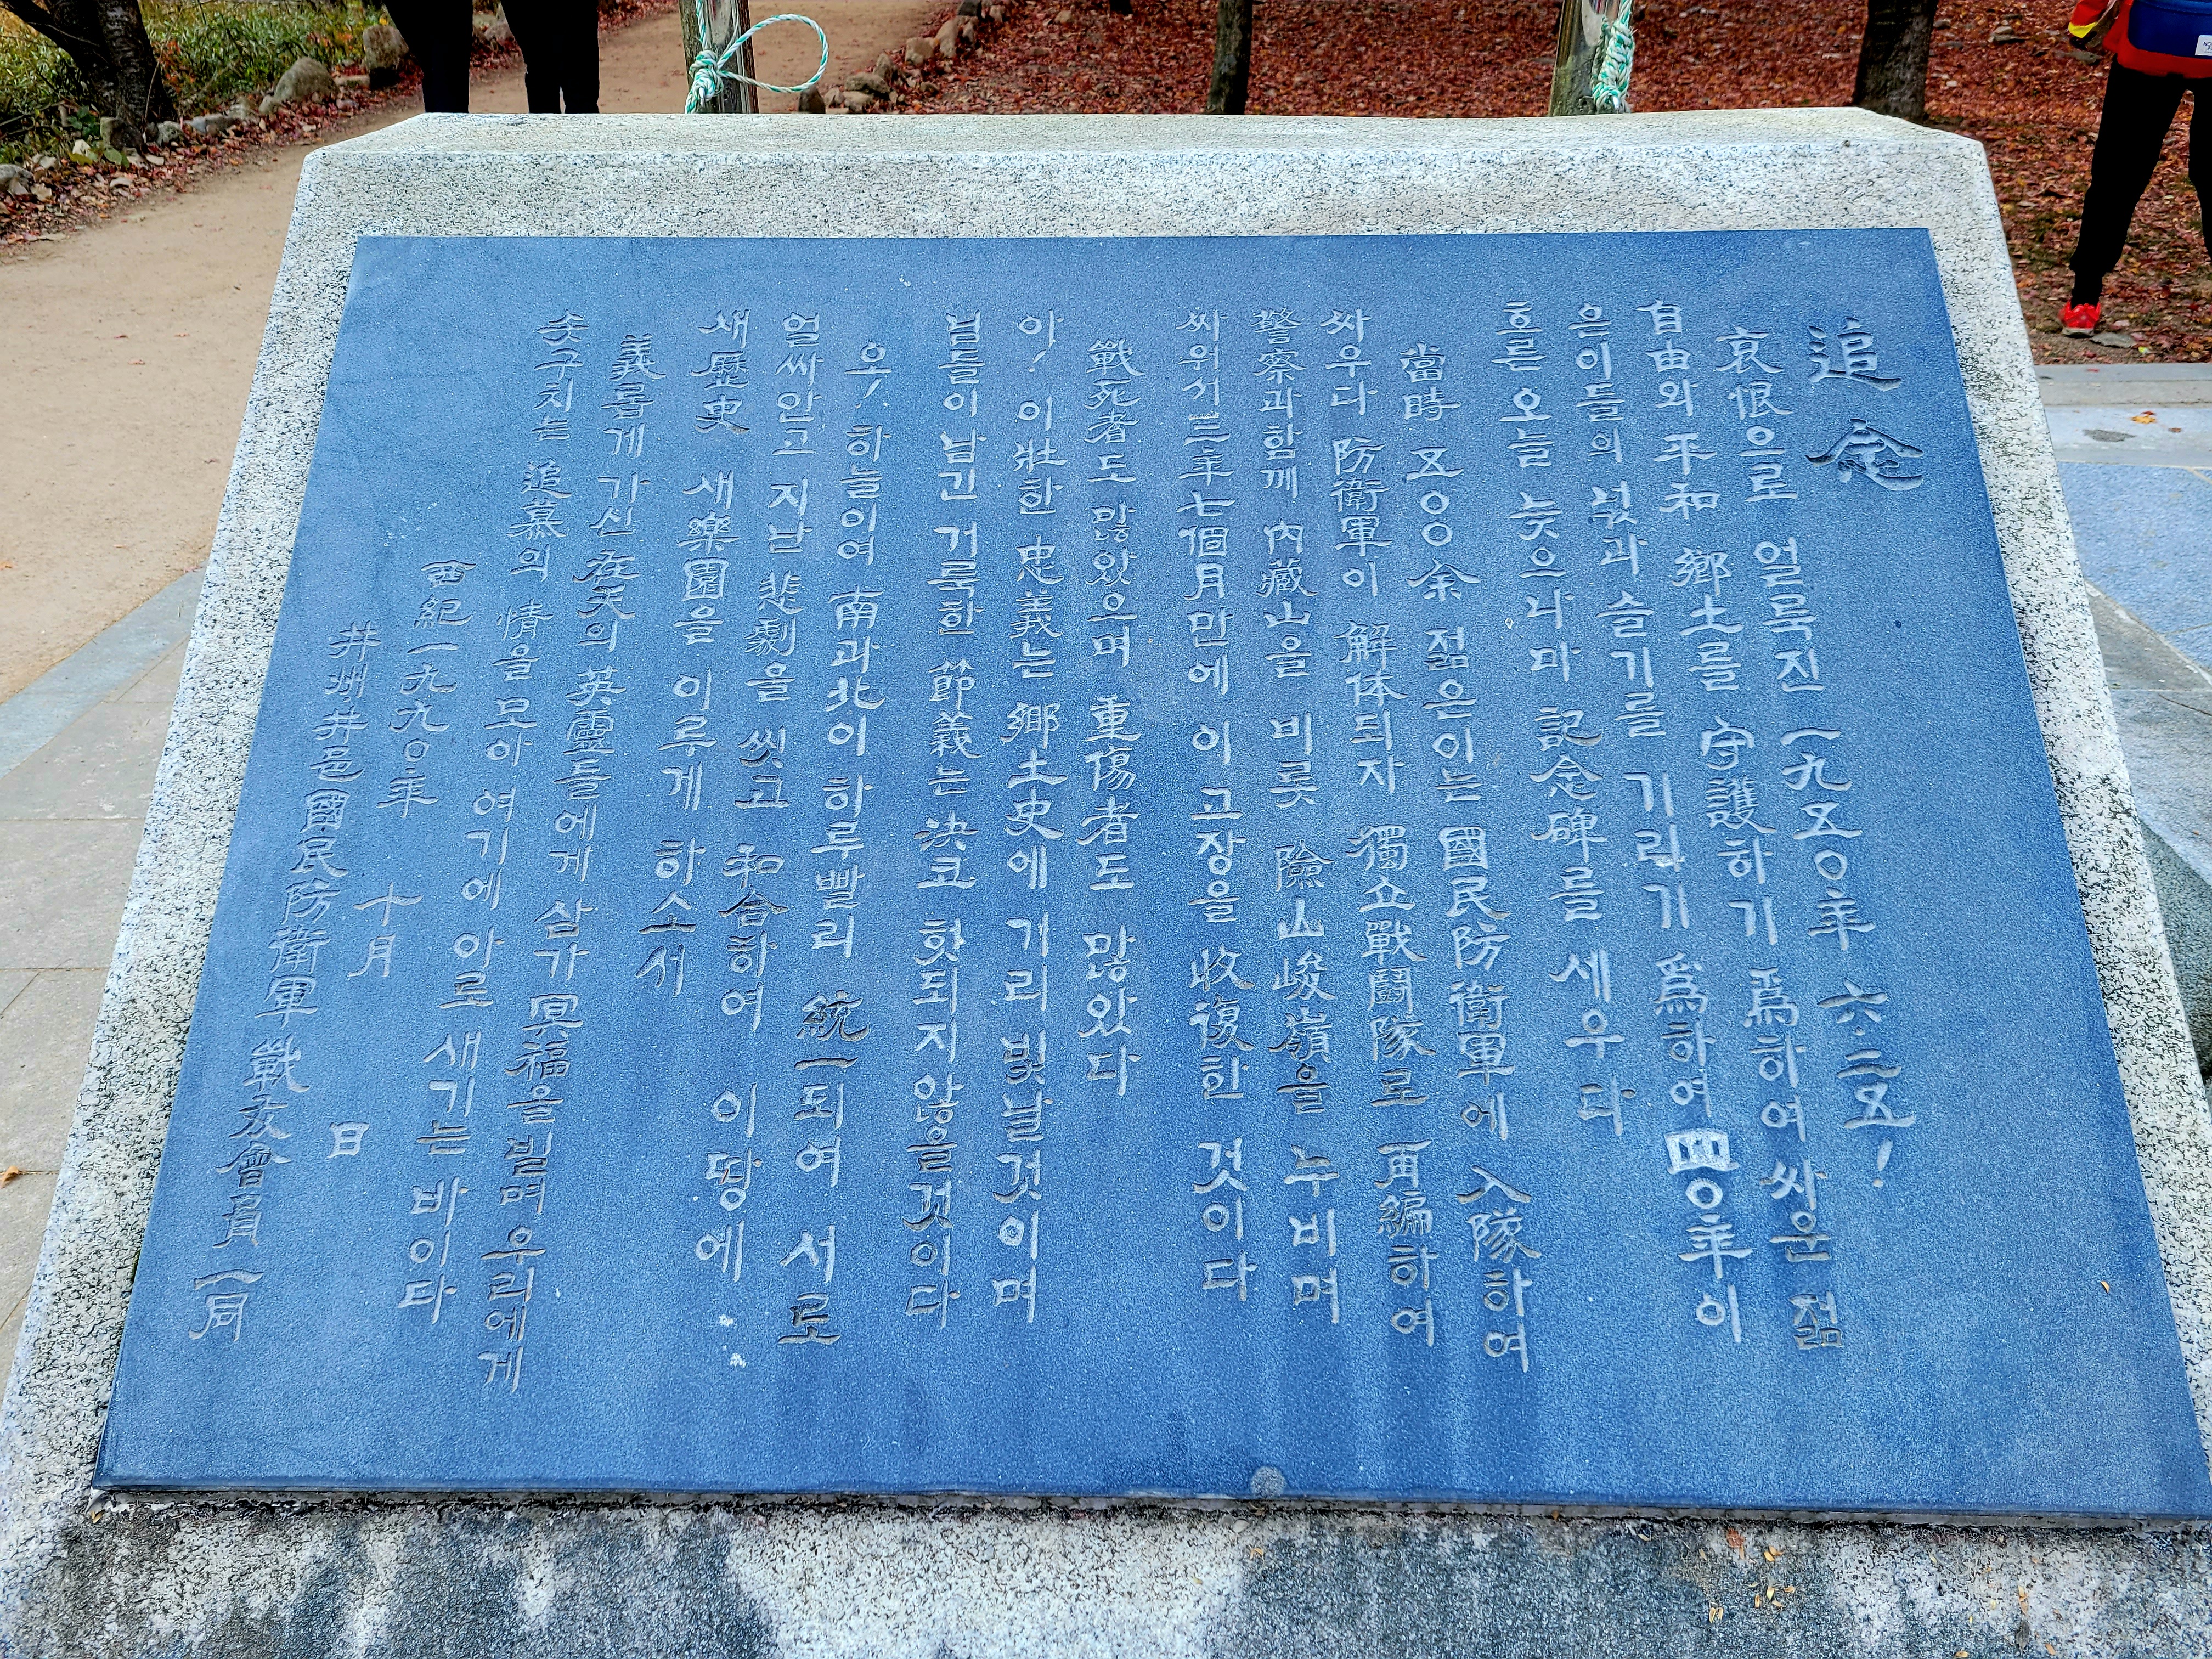 追念
哀恨으로 얼룩진 一九五０年 六·二五!
自由와 平和 鄕土를 守護하기 爲하여 싸운 젊
은이들의 넋과 슬기를 기리기 爲하여 四０年이
흐른 오늘 늦으나마 記念碑를 세우다
當時 五００余 젊은이는 國民防衛軍에 入隊하여
싸우다 防衛軍이 解体되자 獨立戰鬪隊로 再編하여
警察과함께 內藏山을 비롯 險山峻嶺을 누비며
싸워서 三年七個月만에 이 고장을 收復한 것이다
戰死者도 많았으며 重傷者도 많았다
아! 이壯한 忠義는 鄕土史에 기리 빛날것이며
님들이 남긴 거룩한 節義는 決코 헛되지 않을것이다
오! 하늘이여 南과北이 하루빨리 統一되여 서로
얼싸안고 지난 悲劇을 씻고 和合하여 이땅에
새歷史 새樂園을 이루게 하소서
義롭게 가신 在天의 英靈들에게 삼가 冥福을 빌며 우리에게
솟구치는 追慕의 情을 모아 여기에 아로 새기는 바이다
西紀一九九０年 十月 日
井州井邑國民防衛軍 戰友會員 一同